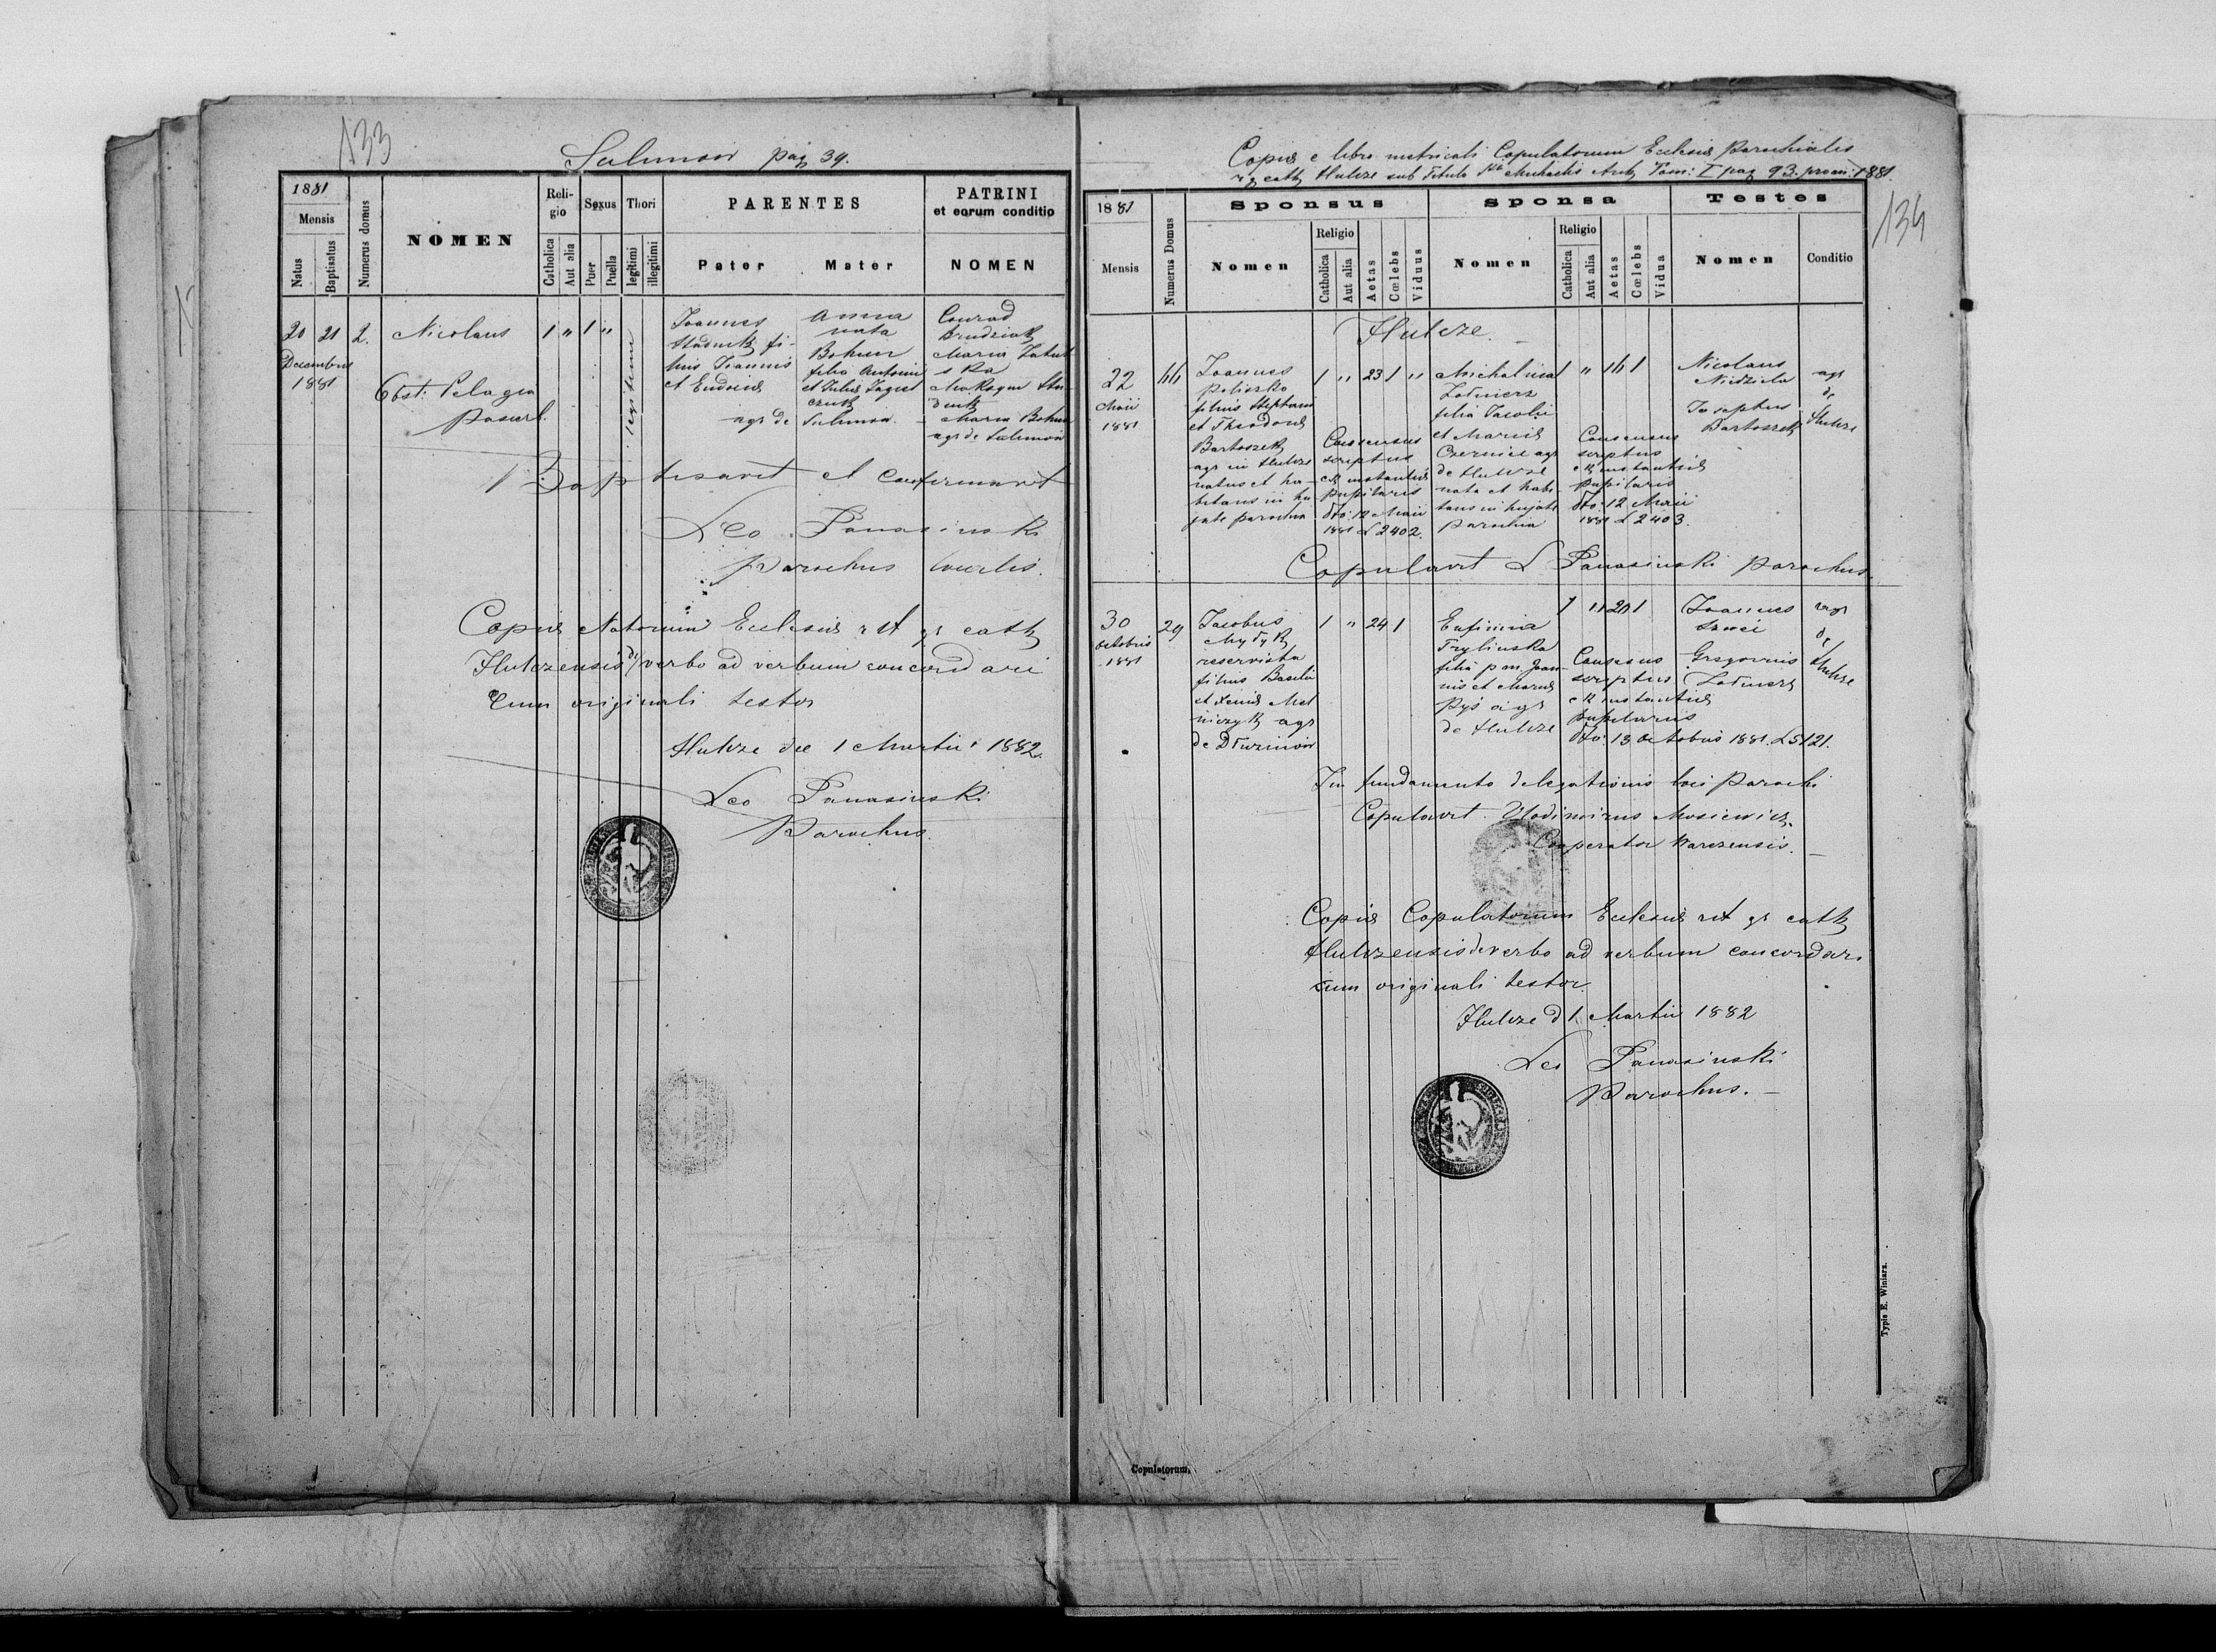 133
Sulimow pag 39.
1881
Mensis
Natus
Baptisatus
Numerus domus
NOMEN
Religio
Catholica
Aut alia
Sexus
Puer
Puella
Thori
legitimi
illegitimi
PARENTES
Pater
Mater
PATRINI
et eorum conditio
NOMEN
20 21 2. Nicolaus 1 " 1 "
Decembris
1881
Obst: Pelagia
legitimi
Joannes
fi-
lius Joannis
et Eudocia
agr de Sulimow
Anna
nata
Bohun
filia Antonii
et Julia
Conrad
Maria
Maria Bohun
agr de Sulimow
Baptisavit et confirmavit
Leo Panasinski
Parochus localis.
Copia Natorum Ecclesia rit gr cath
Hulczensis de verbo ad verbum concordari
cum originali testor
Hulcze die 1 Martii 1882.
Leo Panasinski
Parochus.
Copia e libro metricali Copulatorum Ecclesia Parochialis
r g cath Hulcze sub titulo Sti Michaelis Arch Tom: I pag 93. pro an: 1881.
134
1881
Mensis
Numerus Domus
Sponsus
Nomen
Religio
Catholica
Aut alia
Aetas
Cœlebs
Viduus
Sponsa
Nomen
Religio
Catholica
Aut alia
Aetas
Cœlebs
Vidua
Testes
Nomen
Conditio
Hulcze.
22
Maii
1881
44
Joannes
Poliszko
filius Stephani
et Theodora
Bartoszek
agr in Hulcze
natus et ha-
bitans in hu
jate parochia
1 " 23 1 "
Consensus
scriptus
ex instantia
pupilaris
dto: 12 Maii
1881 L 2402.
Michalina
Zolnierz
filia Jacobi
et Maria
Czernice agr
de Hulcze
nata et habi
tans in hujate
parochia
1 "
Consensus
scriptus
ex instantia
pupilaris
dto: 12 Maii
1881 L 2403.
Nicolaus
Niedziela
Josephus
Bartoszek
agr
de
Hulcze
Copulavit L Panasinski parochus.
30
octobris
1881
29
Jacobus
Mydyk
reservista
filius Basilii
et Xenia Mel
niczyk agr
de Dłużniów
1 " 24 1
Eufimia
Trylinska
filia p m. Joan-
nis et Maria
Pyś agr
de Hulcze
1 "
Consensus
scriptus
ex instantia
pupilaris
dto: 13 octobris 1881. L 5121.
Joannes
Gregorius
Zolnierz
agr
de
Hulcze
In fundamento delegationis loci Parochi
Copulavit Vladimirus Mosiewicz
Cooperator Warezensis.
Copia Copulatorum Ecclesia rit gr cath
Hulczensis de verbo ad verbum concordari
cum originali testor.
Hulcze d 1 Martii 1882
Leo Panasinski
Parochus.
Typis E. Winiarz.
Copulatorum.